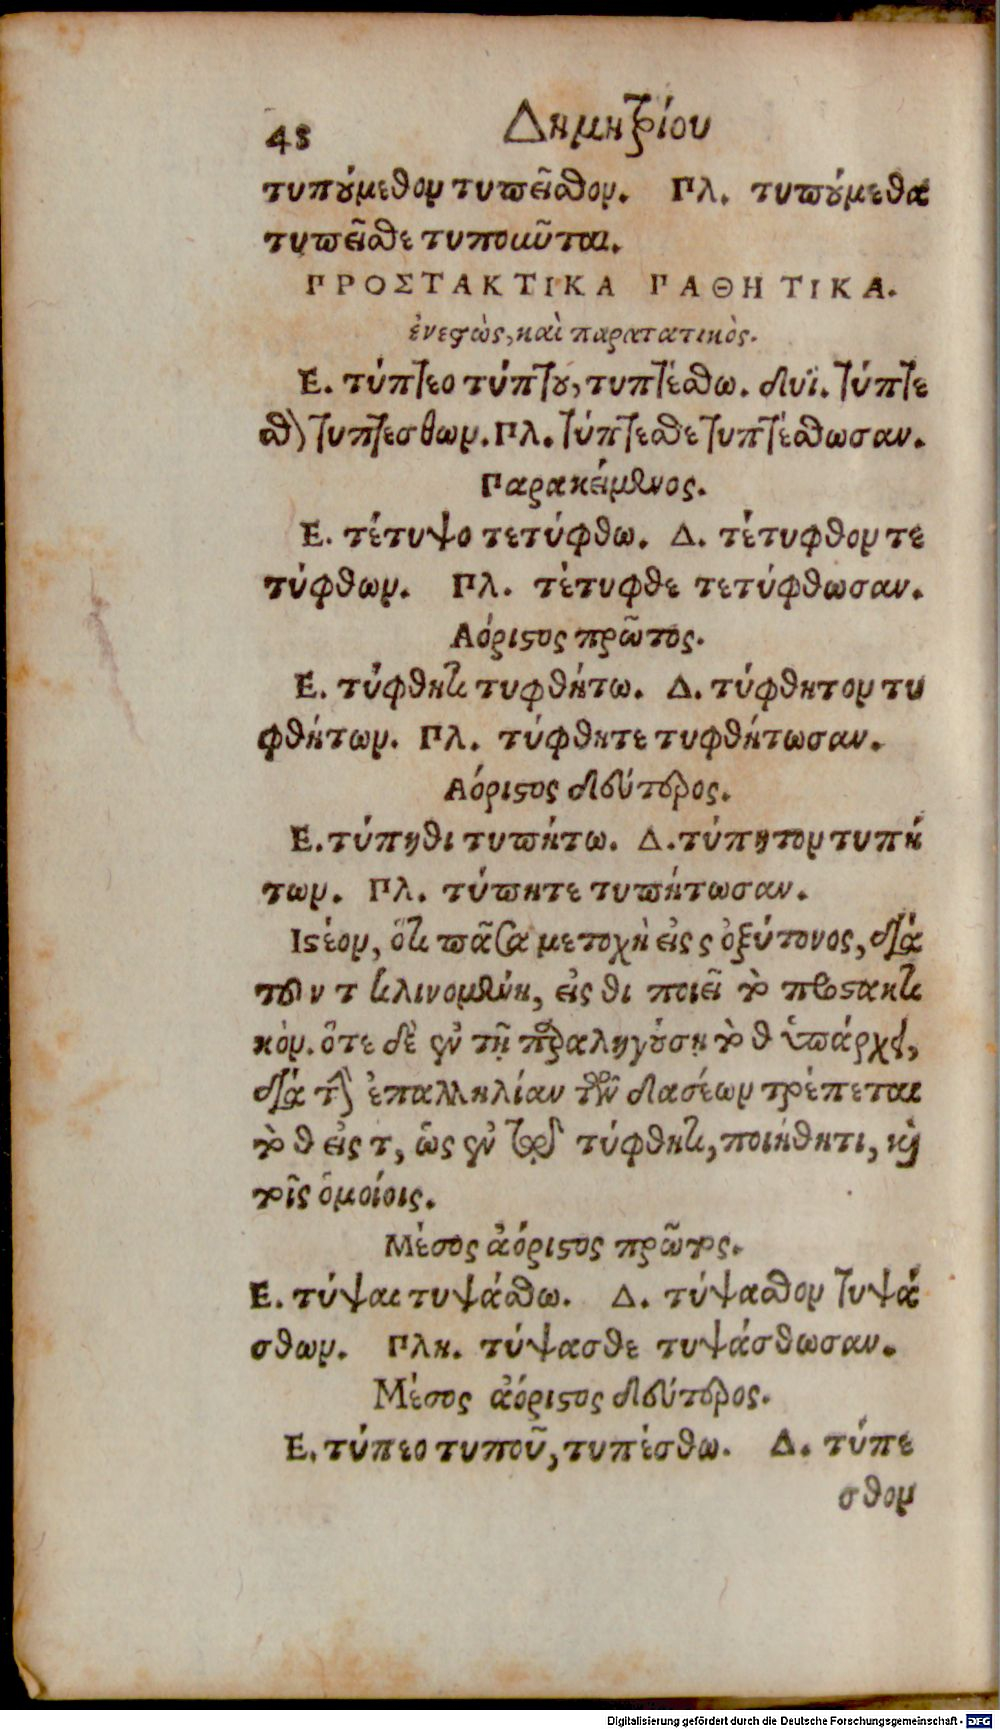 48 Δημητρίου
τυπούμεθον τυπεῖσθον. Πλ. τυπούμεθα
τυπεῖσθε τυποιῦται.
ΠΡΟΣΤΑΚΤΙΚΑ ΠΑΘΗΤΙΚΑ.
ἐνεστὼς, καὶ παρατατικὸς.
Ε. τύπτεο τύπτου, τυπτέσθω. δυϊ. τύπτε
σθον τυπτεσθων. Πλ. τύπτεσθε τυπτέσθωσαν.
Παρακείμενος.
Ε. τέτυψο τετύφθω. Δ. τέτυφθον τε
τύφθων. Πλ. τὲτυφθε τετύφθωσαν.
Αόριστος πρῶτος.
Ε. τύφθητι τυφθήτω. Δ. τύφθητον τυ
φθήτων. Πλ. τύφθητε τυφθήτωσαν.
Αόριστος δεύτερος.
Ε. τύπηθι τυπήτω. Δ. τύπητον τυπή
των. Πλ. τύπητε τυπήτωσαν.
Ιστέον, ὅτι πᾶσα μετοχὴ εἰς ς ὀξύτονος, διὰ
τοῦ ν τ κλινομένη, εἰς θι ποιεῖ τὸ προστακτι
κόν. ὅτε δὲ ἐν τῇ παραληγούσῃ τὸ θ ὑπάρχει,
διὰ τὴν ἐπαλληλίαν τῶν δασέων τρέπεται
τὸ θ εἰς τ, ὡς ἐν τῷ τύφθητι, ποιήθητι, καὶ
τοῖς ὁμοίοις.
Μέσος ἀόριστος πρῶτος.
Ε. τύψαι τυψάσθω. Δ. τύψασθον τυψά
σθων. Πλη. τύψασθε τυψάσθωσαν.
Μέσος ἀόριστος δεύτερος.
Ε. τύπεο τυποῦ, τυπέσθω. Δ. τύπε
σθον
Digitalisierung gefördert durch die Deutsche Forschungsgemeinschaft - DFG